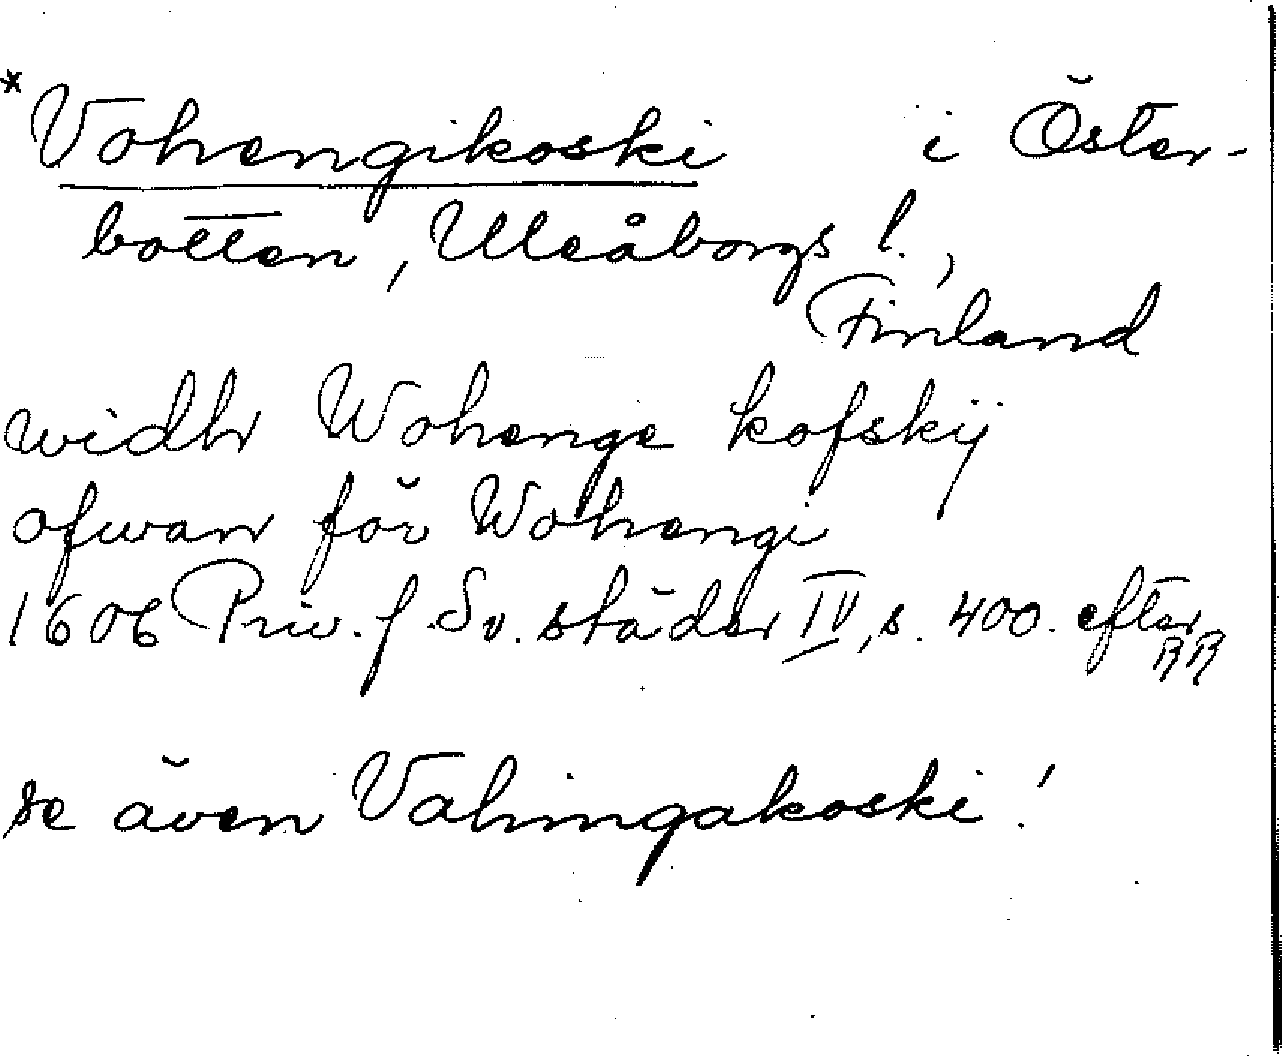 *Vohengikoski i Öster-
botten, Uleåborgs l.,
Finland
widh Wohenge kofskij
ofwan för Wohengi
1606 Priv. f. Sv. städer IV, s. 400. efter
RR
se även Vahingakoski!